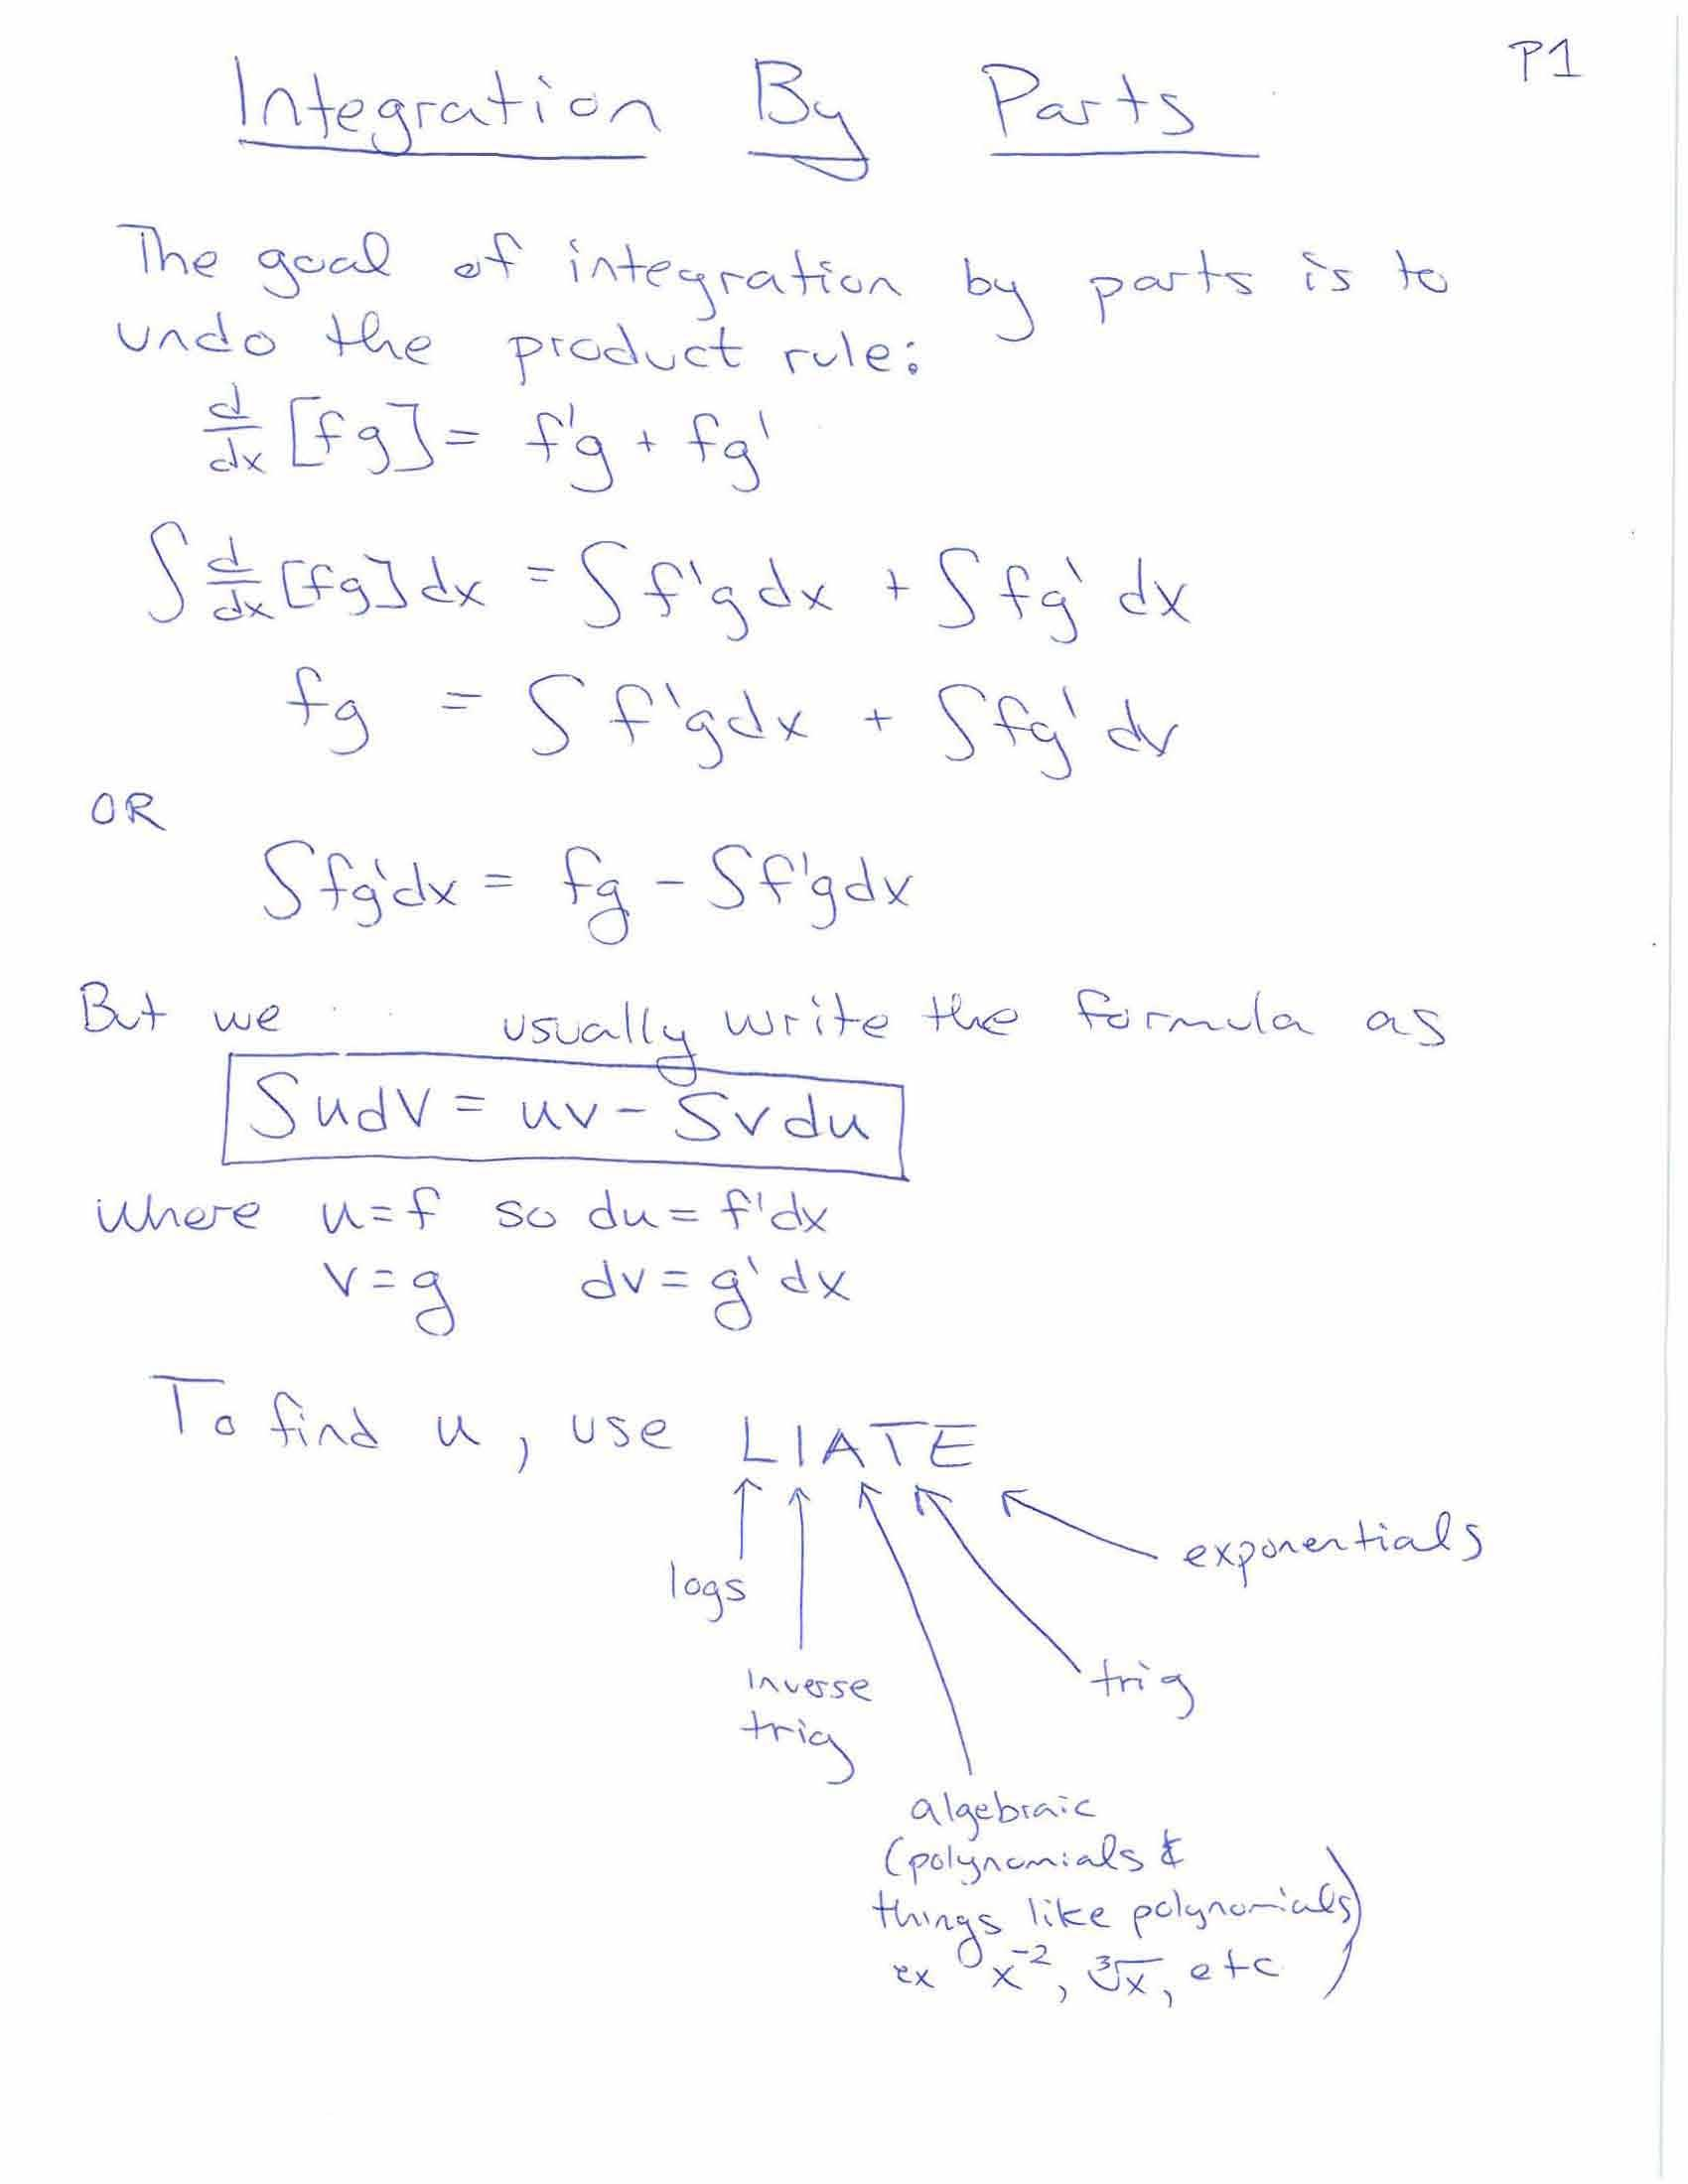 P1
Integration By Parts
The goal of integration by parts is to
undo the product rule:
d/dx [fg] = f'g + fg'
∫ d/dx [fg] dx = ∫ f'g dx + ∫ fg' dx
fg = ∫ f'g dx + ∫ fg' dx
OR
∫ fg' dx = fg - ∫ f'g dx
But we usually write the formula as
∫ u dv = uv - ∫ v du
where u = f so du = f' dx
v = g dv = g' dx
To find u, use LIATE
exponentials
logs
inverse
trig
trig
algebraic
(polynomials &
things like polynomials
ex x⁻², ∛x, etc)